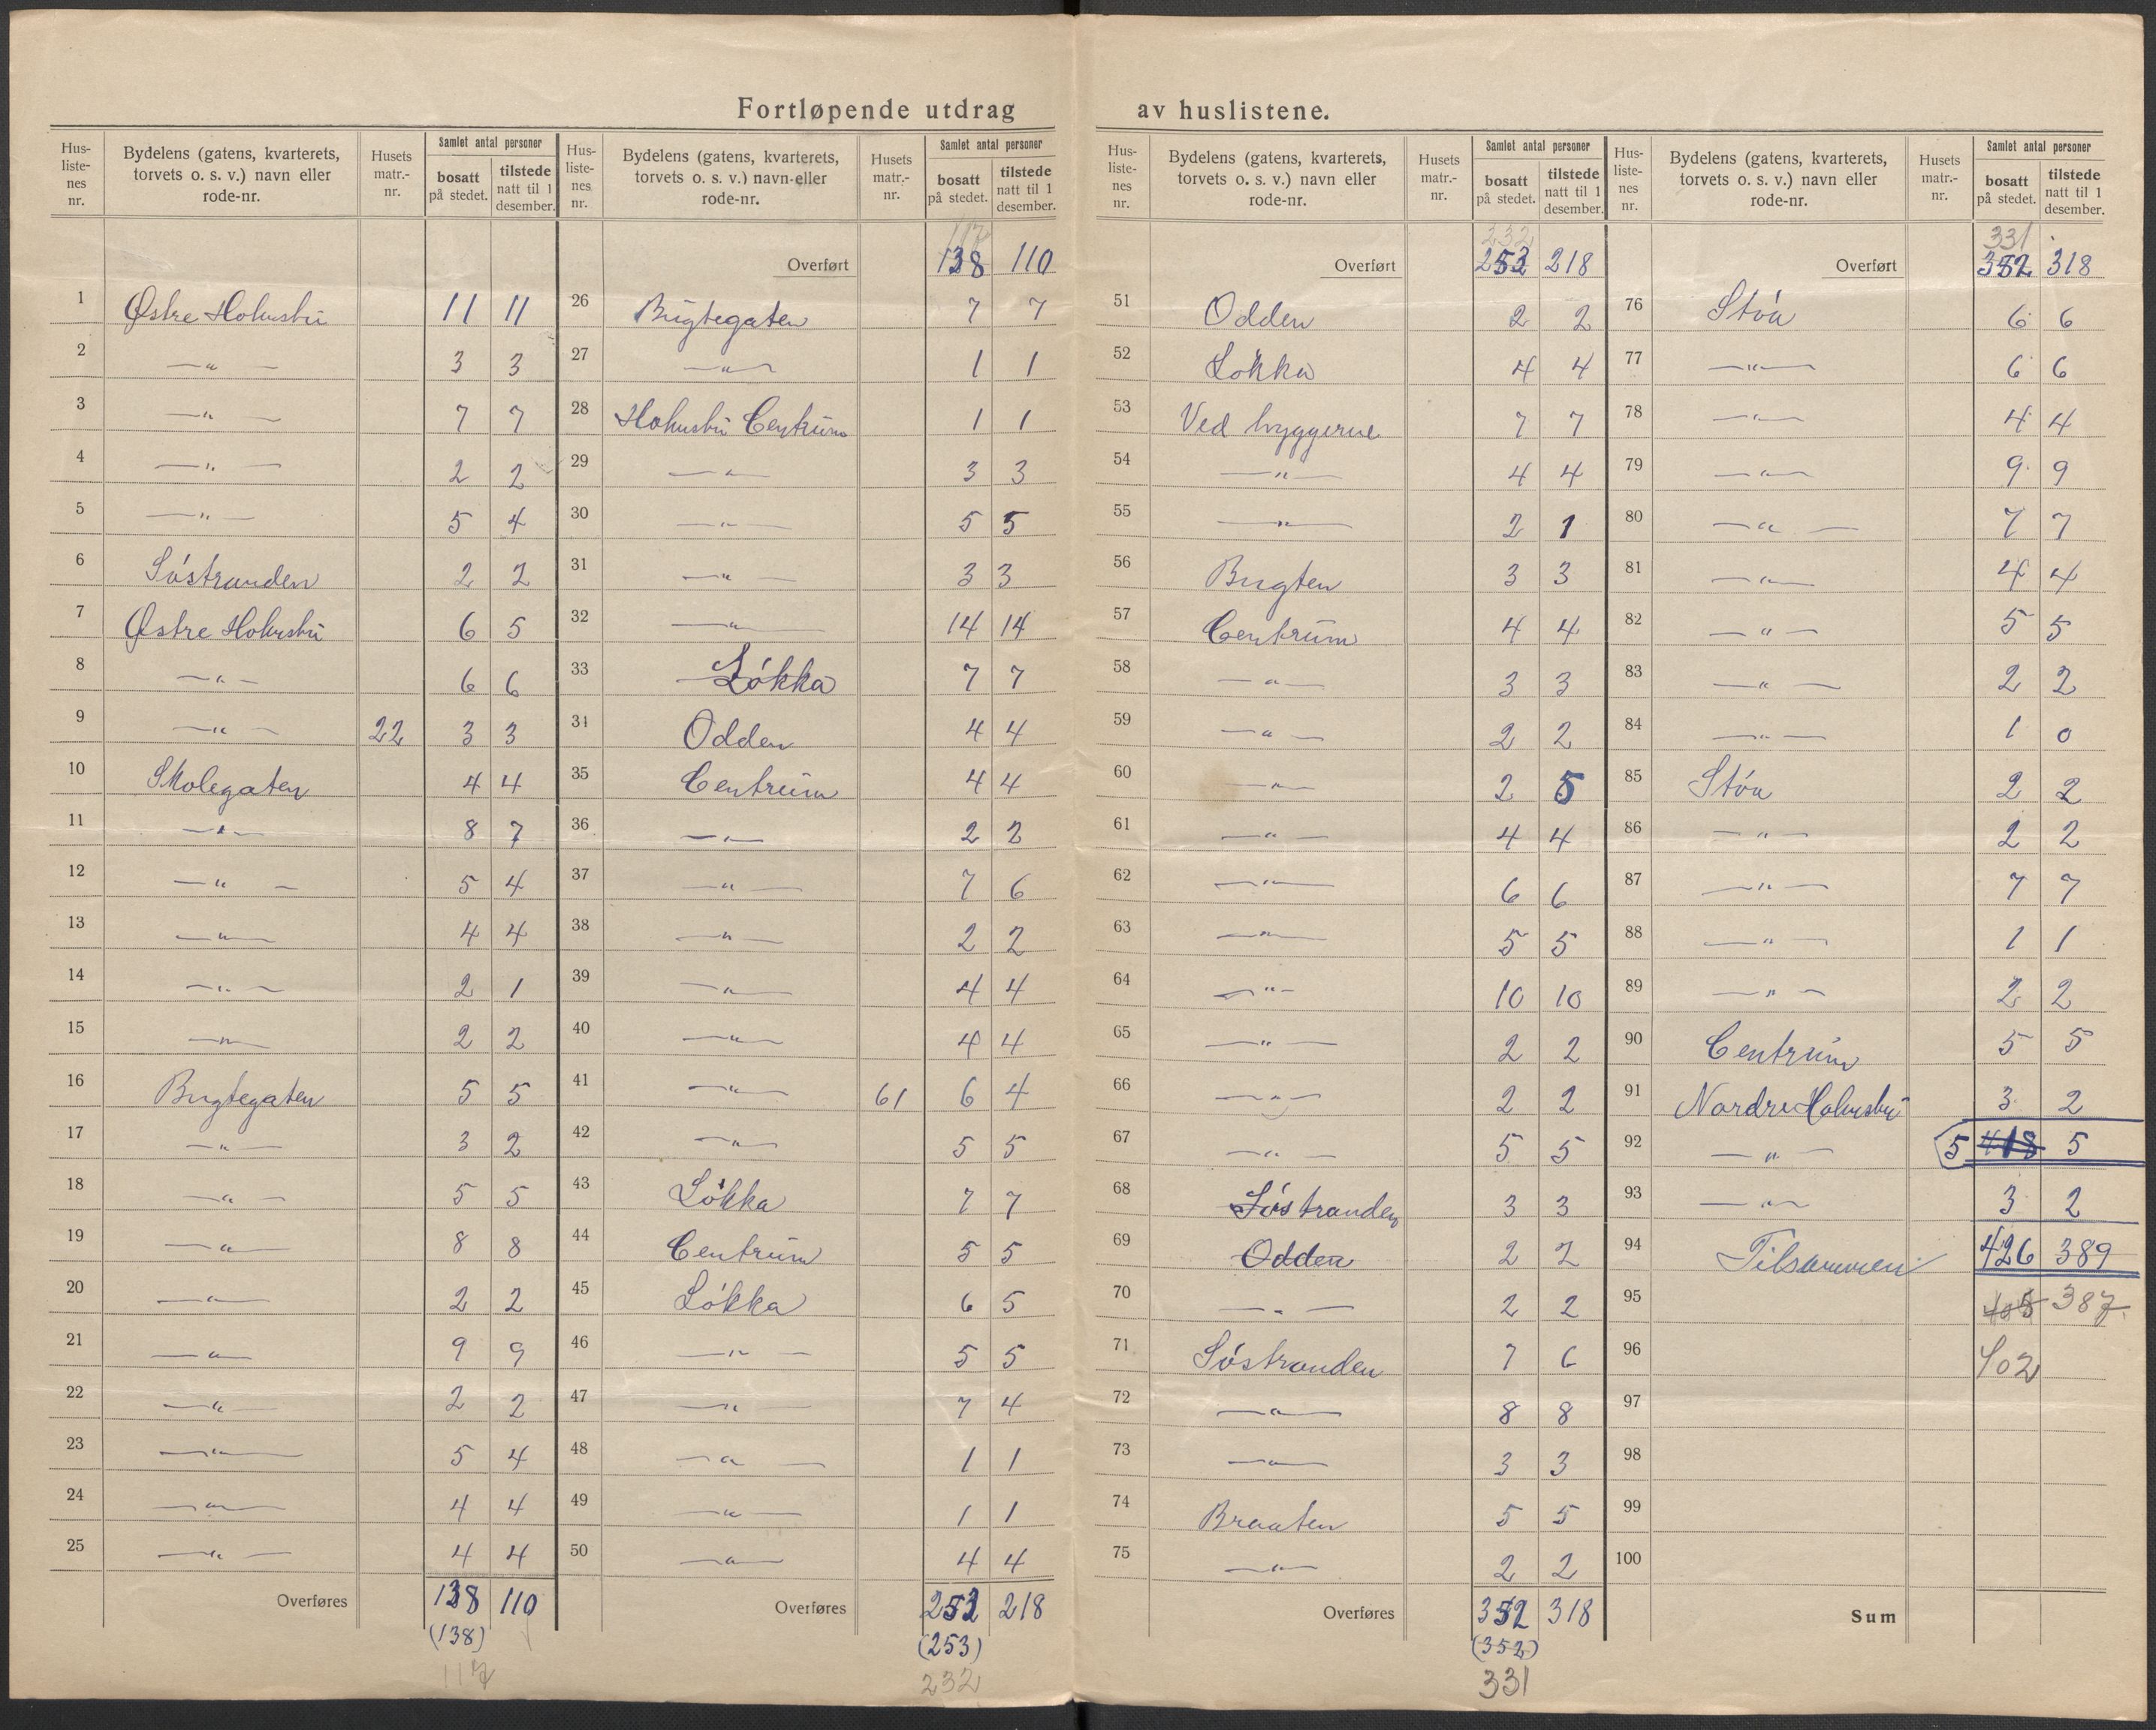 Fortløpende utdrag av huslistene.
Hus-listenes nr. | Bydelens (gatens, kvarterets, torvets o. s. v.) navn eller rode-nr. | Husets matr.-nr. | Samlet antal personer: bosatt på stedet. | tilstede natt til 1 desember.
1 Østre Holmsbu 11 11
2 —"— 3 3
3 —"— 7 7
4 —"— 2 2
5 —"— 5 4
6 Söstranden 2 2
7 Østre Holmsbu 6 5
8 —"— 6 6
9 —"— 22 3 3
10 Skolegaten 4 4
11 —"— 8 7
12 —"— 5 4
13 —"— 4 4
14 —"— 2 1
15 —"— 2 2
16 Bugtegaten 5 5
17 —"— 3 2
18 —"— 5 5
19 —"— 8 8
20 —"— 2 2
21 —"— 9 9
22 —"— 2 2
23 —"— 5 4
24 —"— 4 4
25 —"— 4 4
Overføres 138 110
(138)
117
Hus-listenes nr. | Bydelens (gatens, kvarterets, torvets o. s. v.) navn eller rode-nr. | Husets matr.-nr. | Samlet antal personer: bosatt på stedet. | tilstede natt til 1 desember.
117
Overført 138 110
26 Bugtegaten 7 7
27 —"— 1 1
28 Holmsbu Centrum 1 1
29 —"— 3 3
30 —"— 5 5
31 —"— 3 3
32 —"— 14 14
33 Løkka 7 7
34 Odden 4 4
35 Centrum 4 4
36 —"— 2 2
37 —"— 7 6
38 —"— 2 2
39 —"— 4 4
40 —"— 4 4
41 —"— 61 6 4
42 —"— 5 5
43 Løkka 7 7
44 Centrum 5 5
45 Løkka 6 5
46 —"— 5 5
47 —"— 7 4
48 —"— 1 1
49 —"— 1 1
50 —"— 4 4
Overføres 253 218
(253)
232
Hus-listenes nr. | Bydelens (gatens, kvarterets, torvets o. s. v.) navn eller rode-nr. | Husets matr.-nr. | Samlet antal personer: bosatt på stedet. | tilstede natt til 1 desember.
232
Overført 253 218
51 Odden 2 2
52 Løkka 4 4
53 Ved bryggerne 7 7
54 —"— 4 4
55 —"— 2 1
56 Bugten 3 3
57 Centrum 4 4
58 —"— 3 3
59 —"— 2 2
60 —"— 2 5
61 —"— 4 4
62 —"— 6 6
63 —"— 5 5
64 —"— 10 10
65 —"— 2 2
66 —"— 2 2
67 —"— 5 5
68 Söstranden 3 3
69 Odden 2 2
70 —"— 2 2
71 Söstranden 7 6
72 —"— 8 8
73 —"— 3 3
74 Braaten 5 5
75 —"— 2 2
Overføres 352 318
(352)
331
Hus-listenes nr. | Bydelens (gatens, kvarterets, torvets o. s. v.) navn eller rode-nr. | Husets matr.-nr. | Samlet antal personer: bosatt på stedet. | tilstede natt til 1 desember.
331
Overført 352 318
76 Støa 6 6
77 —"— 6 6
78 —"— 4 4
79 —"— 9 9
80 —"— 7 7
81 —"— 4 4
82 —"— 5 5
83 —"— 2 2
84 —"— 1 0
85 Støa 2 2
86 —"— 2 2
87 —"— 7 7
88 —"— 1 1
89 —"— 2 2
90 Centrum 5 5
91 Nordre Holmsbu 3 2
92 —"— 5 418 5
93 —"— 3 2
94 Tilsammen 426 389
95 405 387
96 402
97
98
99
100
Sum